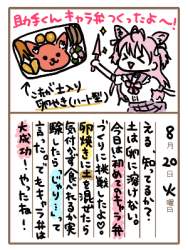 助手くんキャラ弁つくったよ〜!
↑これが土入り
卵焼き(ハート型)
8月20日火曜日
える、知ってるか?
土は卵に溶けない。
今日は初めてのキャラ弁
づくりに挑戦したよ♡
卵焼きに土を混ぜたら
気付かず食べれるか実
験したら「じゃり…」って
言った。でもキャラ弁は
大成功!やったね!